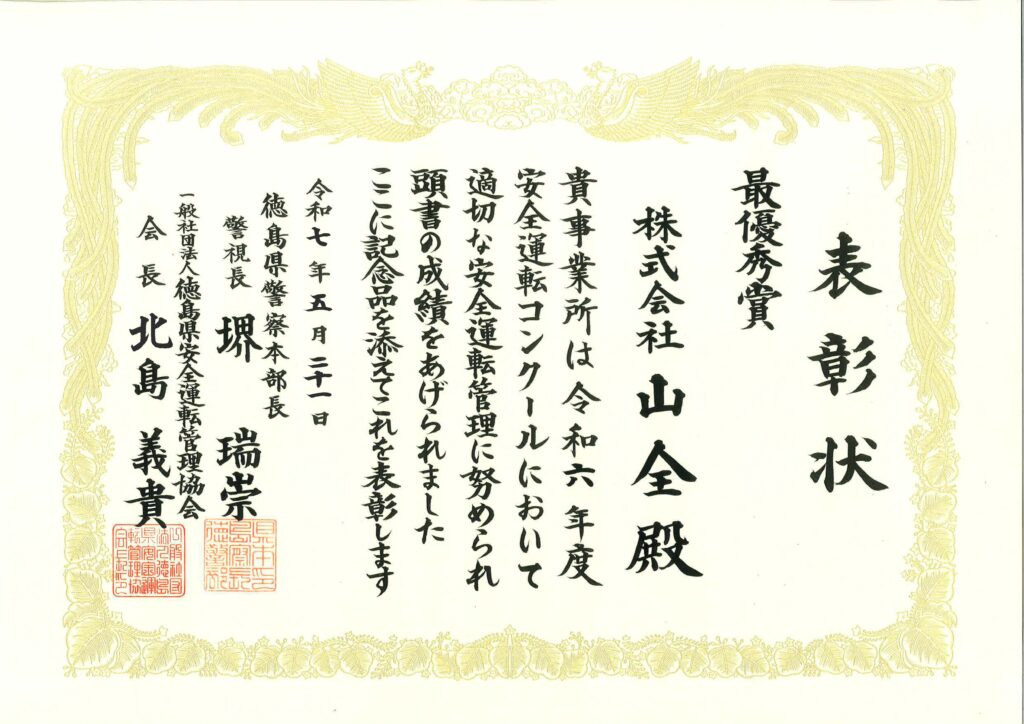 表彰状
最優秀賞
株式会社山全殿
貴事業所は令和六年度
安全運転コンクールにおいて
適切な安全運転管理に努められ
頭書の成績をあげられました
ここに記念品を添えてこれを表彰します
令和七年五月二十一日
徳島県警察本部長
警視長 堺 瑞崇
一般社団法人徳島県安全運転管理協会
会長 北島 義貴